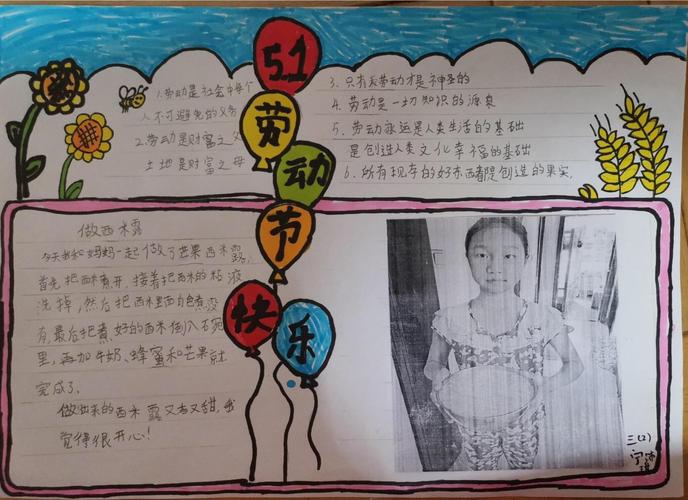 5.1
劳
动
节
快
乐
1.劳动是社会中每个
人不可避免的义务
2.劳动是财富之父
土地是财富之母
3.只有劳动才是神圣的
4.劳动是一切知识的源泉
5.劳动永远是人类生活的基础
是创造人类文化幸福的基础
6.所有现存的好东西都是创造的果实.
做西米露
今天我和妈妈一起做了芒果西米露,
首先把西米煮开,接着把西米的粘液
洗掉,然后把西米里面白色煮没
有,最后把煮好的西米倒入石碗
里,再加牛奶、蜂蜜和芒果就
完成了。
做出来的西米露又香又甜,我
觉得很开心!
三(2)
宁